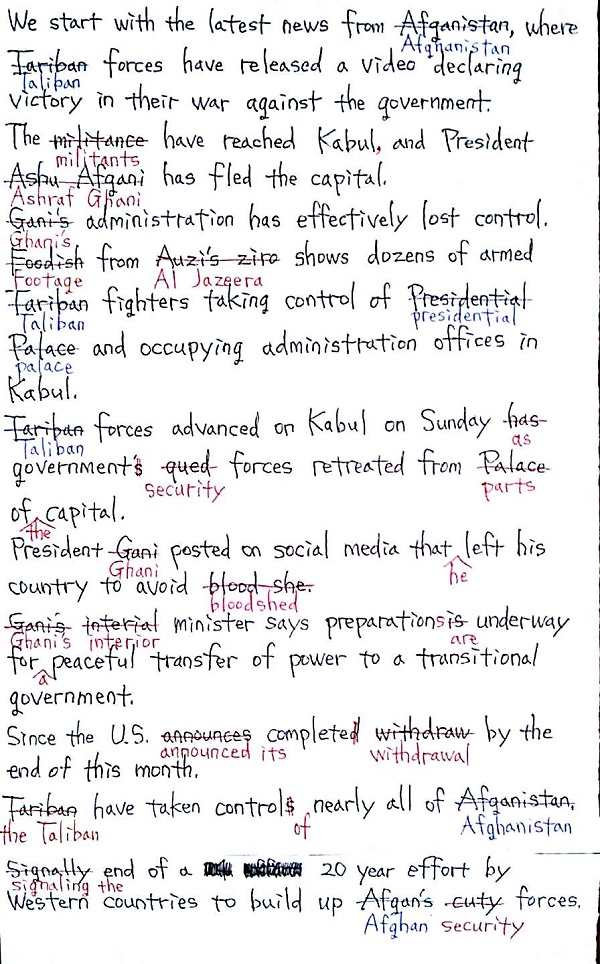 We start with the latest news from Afganistan, where
Afghanistan
Tariban forces have released a video declaring
Taliban
victory in their war against the government.
The militance have reached Kabul, and President
militants
Ashu Afgani has fled the capital.
Ashraf Ghani
Gani's administration has effectively lost control.
Ghani's
Foodish from Auzi's zira shows dozens of armed
Footage Al Jazeera
Tariban fighters taking control of Presidential
Taliban presidential
Palace and occupying administration offices in
palace
Kabul.
Tariban forces advanced on Kabul on Sunday has
Taliban as
government's qued forces retreated from Palace
security parts
of capital.
the
President Gani posted on social media that left his
Ghani he
country to avoid blood she.
bloodshed
Gani's interial minister says preparations is underway
Ghani's interior are
for peaceful transfer of power to a transitional
a
government.
Since the U.S. announces completed withdraw by the
announced its withdrawal
end of this month.
Tariban have taken controls nearly all of Afganistan,
the Taliban of Afghanistan
Signally end of a 20 year effort by
signaling the
Western countries to build up Afgan's cuty forces.
Afghan security